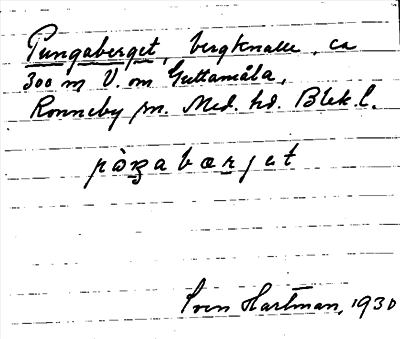 Pungaberget, bergknalle, ca
300 m V. om Guttamåla,
Ronneby sn. Med. hd. Blek. l.
Sven Hartman, 1930